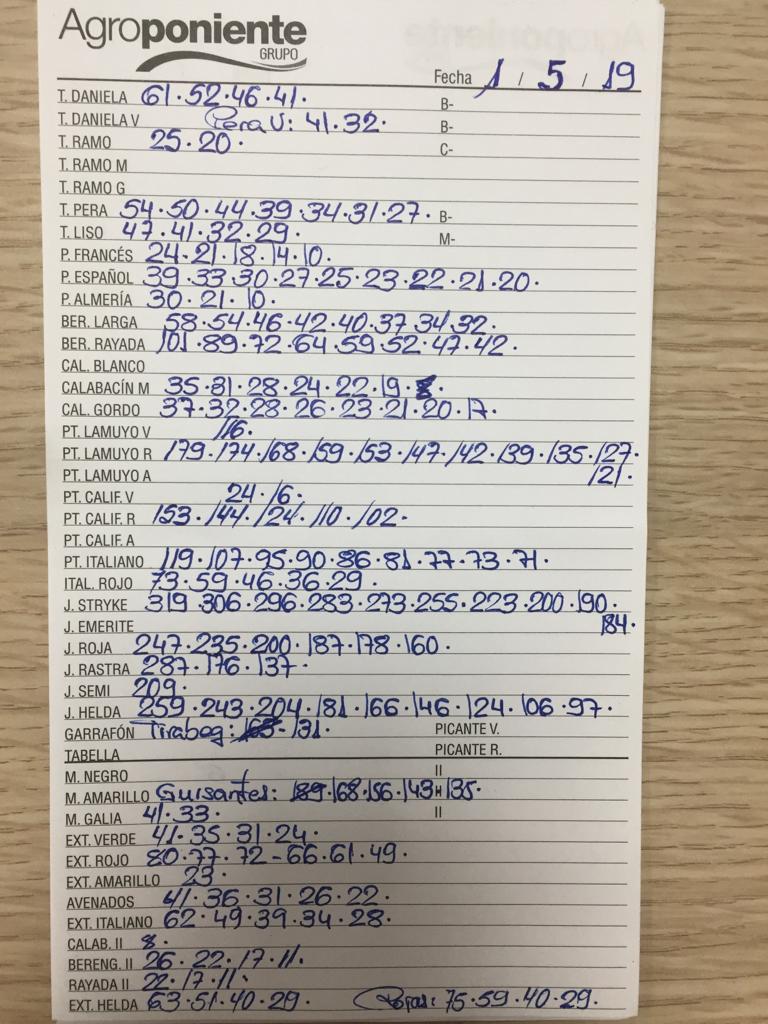 Agroponiente
GRUPO
Fecha 1 / 5 / 19
T. DANELA 61.52.46.41. B-
T. DANIELA V Pera V: 41.32. B-
T. RAMO 25.20. C-
T. RAMO M
T. RAMO G
T. PERA 54.50.44.39.34.31.27. B-
T. LISO 47.41.32.29. M-
P. FRANCÉS 24.21.18.14.10.
P. ESPAÑOL 39.33.30.27.25.23.22.21.20.
P. ALMERÍA 30.21.10.
BER. LARGA 58.54.46.42.40.37.34.32.
BER. RAYADA 101.89.72.64.59.52.47.42.
CAL. BLANCO
CALABACÍN M 35.31.28.24.22.19.
CAL. GORDO 37.32.28.26.23.21.20.17.
PT. LAMUYO V 116.
PT. LAMUYO R 179.174.168.159.153.147.142.139.135.127.
PT. LAMUYO A 121.
PT. CALIF. V 24.16.
PT. CALIF. R 153.144.124.110.102.
PT. CALIF. A
PT. ITALIANO 119.107.95.90.86.81.77.73.71.
ITAL. ROJO 73.59.46.36.29.
J. STRYKE 319.306.296.283.273.255.223.200.190.
J. EMERITE 184.
J. ROJA 247.235.200.187.178.160.
J. RASTRA 287.176.137.
J. SEMI 209.
J. HELDA 259.243.204.181.166.146.124.106.97.
GARRAFÓN Tirabeq: 131. PICANTE V.
TABELLA PICANTE R.
M. NEGRO II
M. AMARILLO Guisantes: 189.168.156.143.135. II
M. GALIA 41.33. II
EXT. VERDE 41.35.31.24.
EXT. ROJO 80.77.72-66.61.49.
EXT. AMARILLO 23.
AVENADOS 41.36.31.26.22.
EXT. ITALIANO 62.49.39.34.28.
CALAB. II 8.
BERENG. II 26.22.17.11.
RAYADA II 22.17.11.
EXT. HELDA 63.51.40.29. 75.59.40.29.